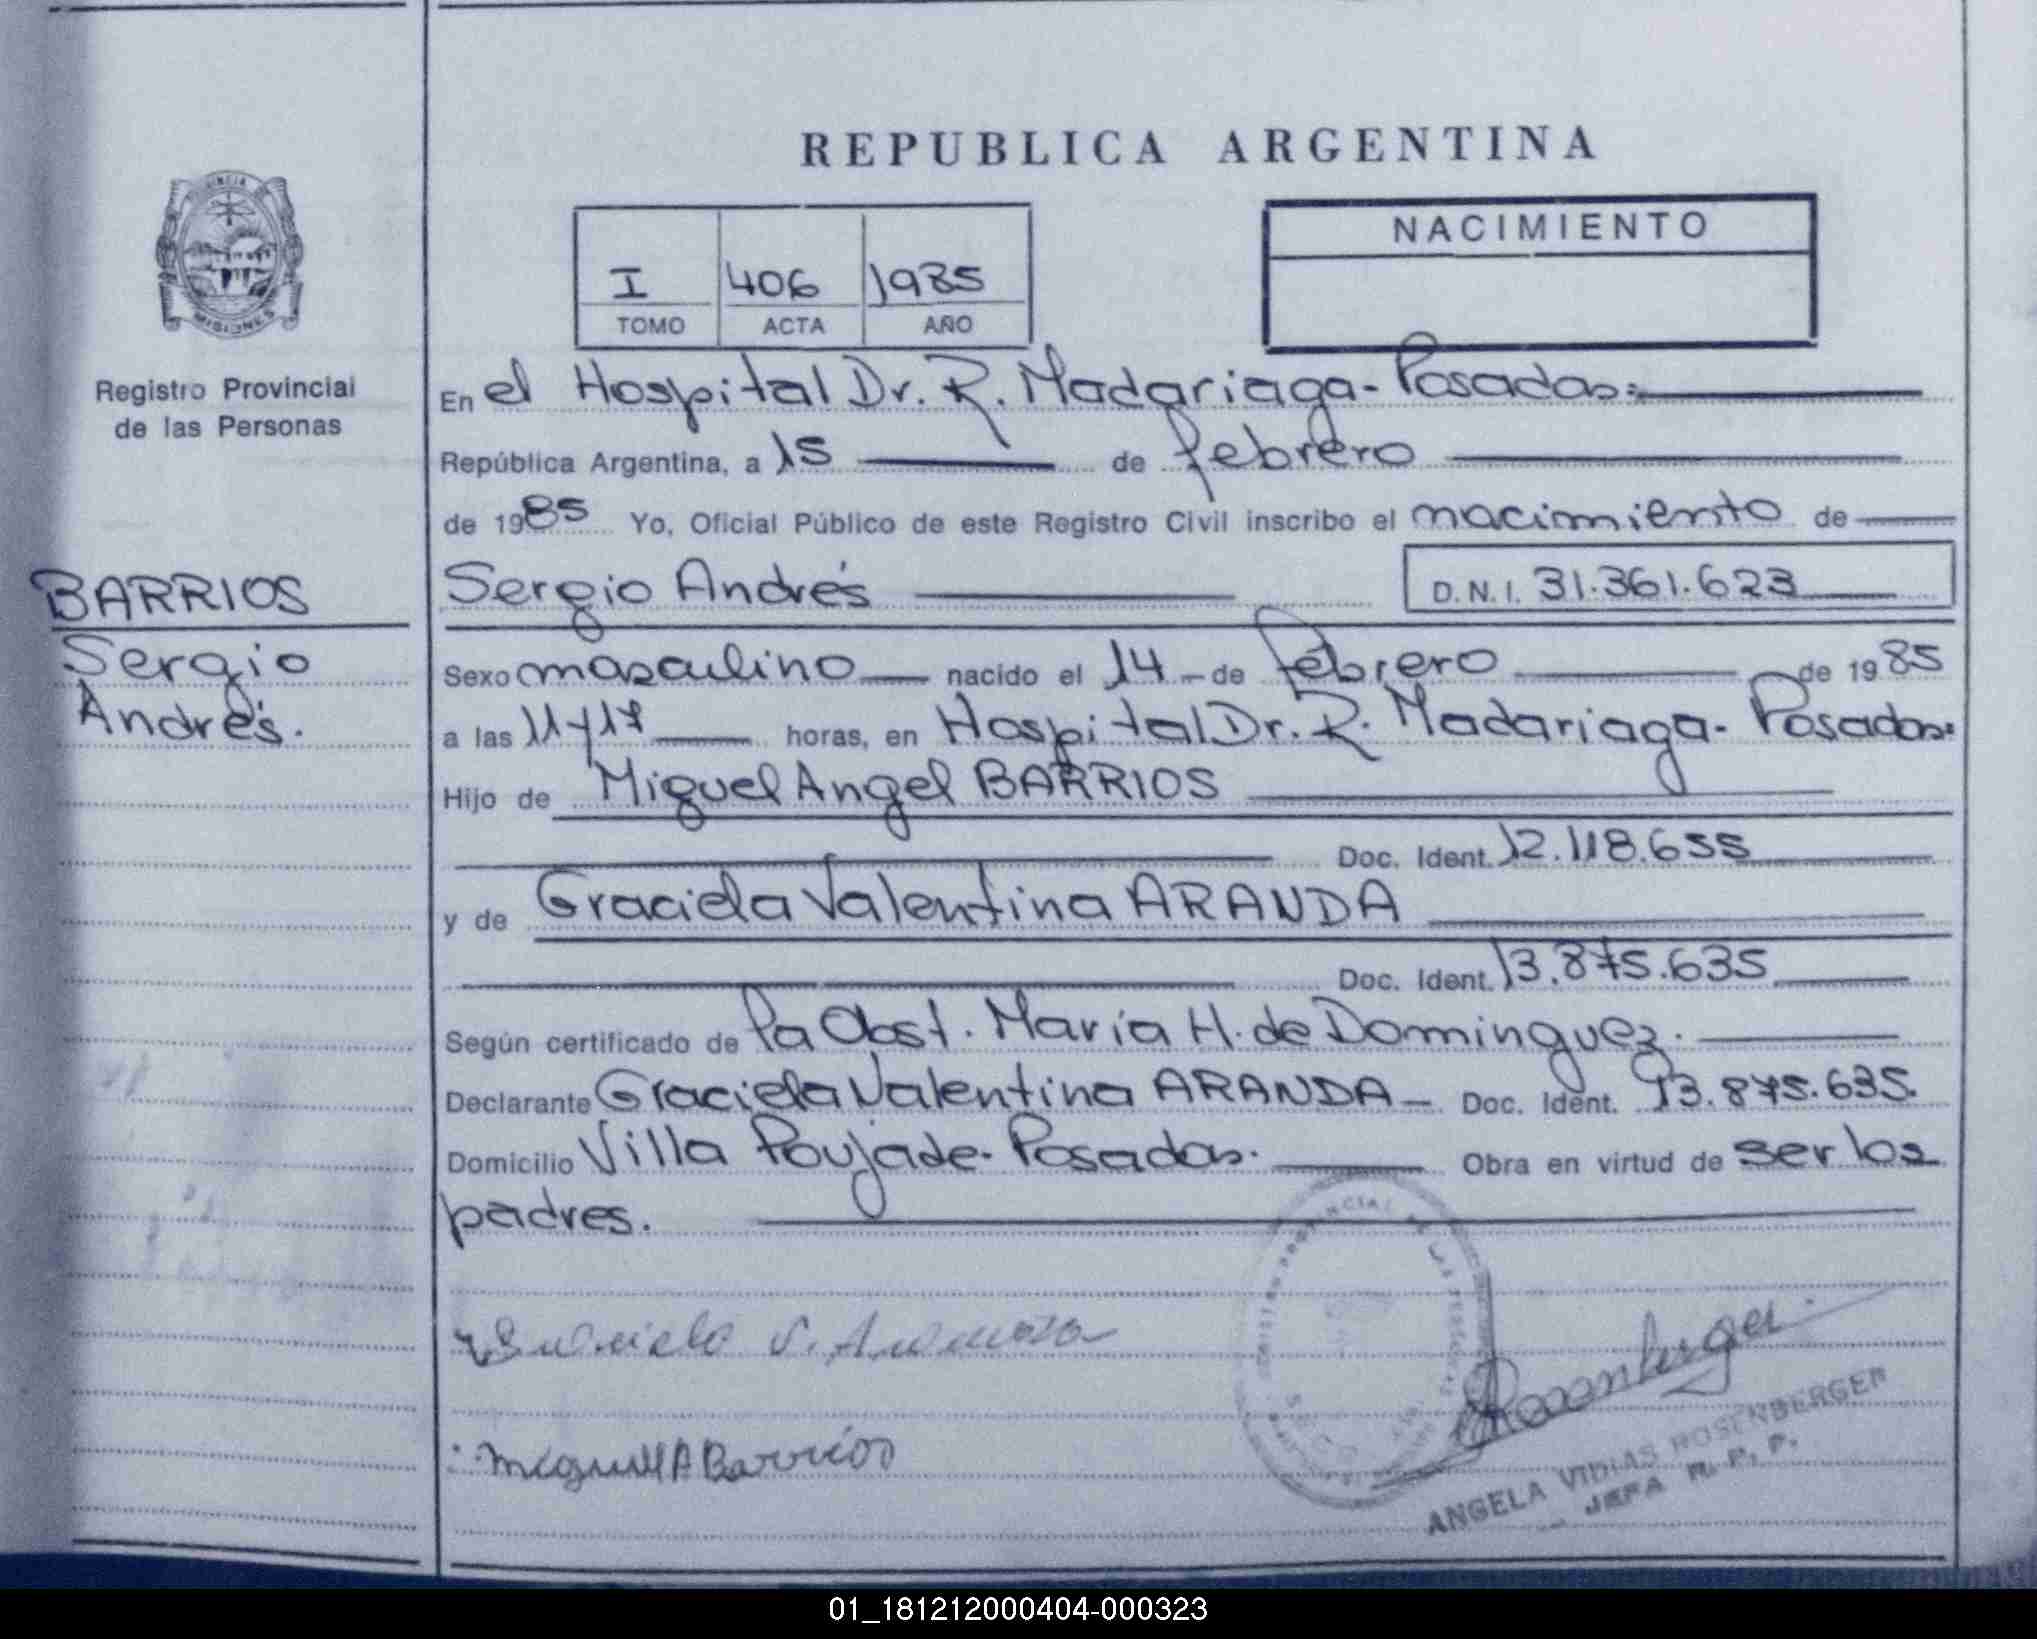 REPUBLICA ARGENTINA
NACIMIENTO
I 406 1985
TOMO ACTA AÑO
MISIONES
Registro Provincial
de las Personas
BARRIOS
Sergio
Andrés.
En el Hospital Dr. R. Madariaga- Posadas.
República Argentina, a 15 de febrero
de 1985 Yo, Oficial Público de este Registro Civil inscribo el nacimiento de
Sergio Andrés D.N.I. 31.361.623
Sexo masculino nacido el 14 de febrero de 1985
a las 11 y 17 horas, en Hospital Dr. R. Madariaga- Posadas.
Hijo de Miguel Angel BARRIOS
Doc. Ident. 12.118.655
y de Graciela Valentina ARANDA
Doc. Ident. 13.875.635
Según certificado de la Obst. María H. de Dominguez.
Declarante Graciela Valentina ARANDA Doc. Ident. 13.875.635.
Domicilio Villa Poujade- Posadas. Obra en virtud de ser los
padres.
Miguel A Barrios
Rosenberger
ANGELA VIDIAS ROSENBERGER
JEFA R. P. P.
01_181212000404-000323